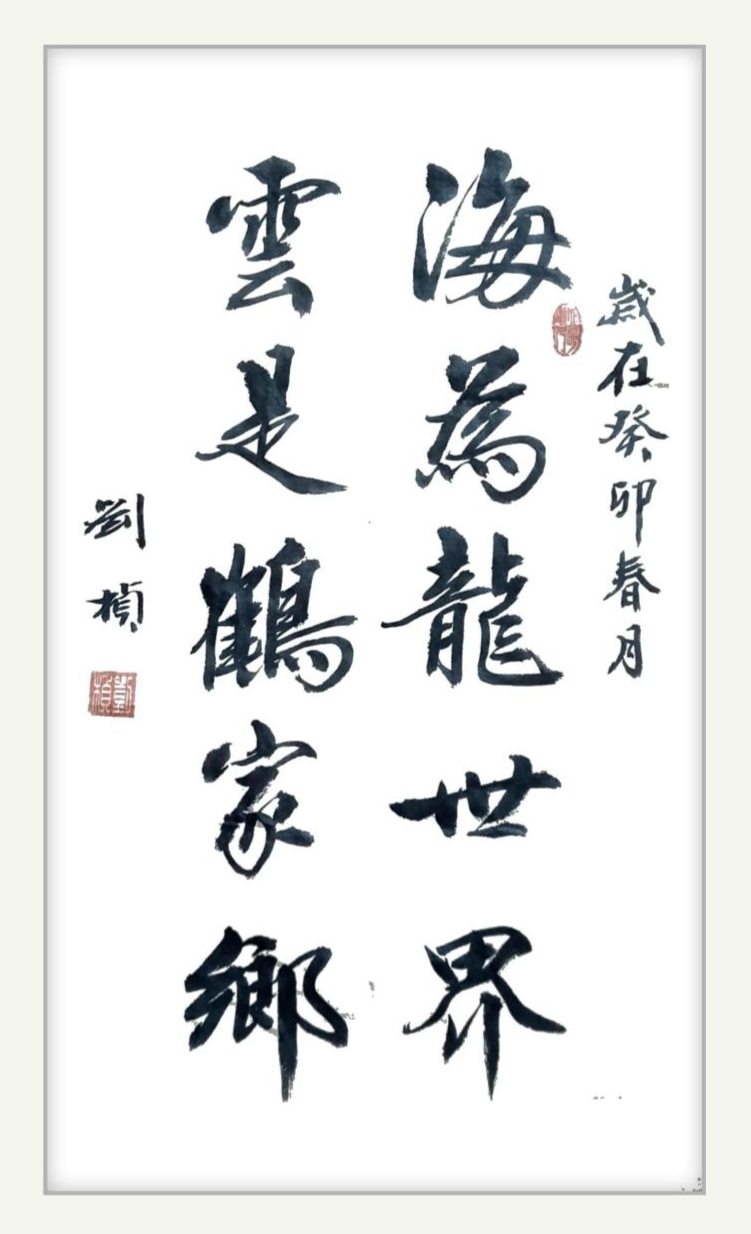 歲在癸卯春月
海為龍世界
雲是鶴家鄉
劉楨
劉楨